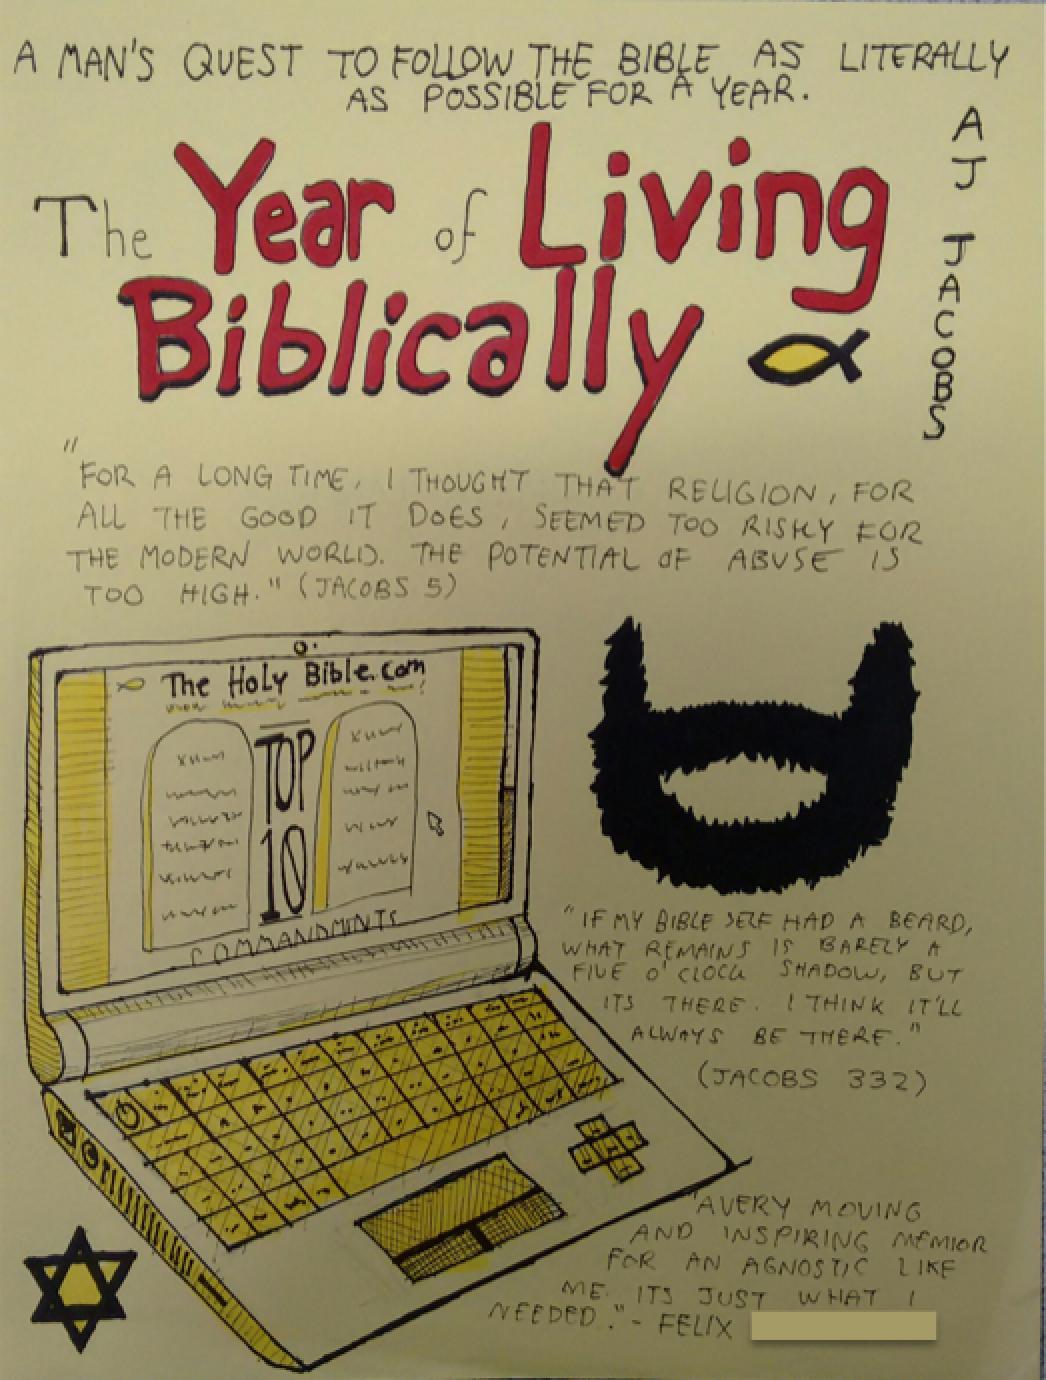 A MAN'S QUEST TO FOLLOW THE BIBLE AS LITERALLY
AS POSSIBLE FOR A YEAR.
AJ JACOBS
The Year of Living
Biblically
"FOR A LONG TIME, I THOUGHT THAT RELIGION, FOR
ALL THE GOOD IT DOES, SEEMED TOO RISKY FOR
THE MODERN WORLD. THE POTENTIAL OF ABUSE IS
TOO HIGH." (JACOBS 5)
The Holy Bible.com
TOP
10
COMMANDMINTS
"IF MY BIBLE SELF HAD A BEARD,
WHAT REMAINS IS BARELY A
FIVE O'CLOCK SHADOW, BUT
ITS THERE. I THINK IT'LL
ALWAYS BE THERE."
(JACOBS 332)
"AVERY MOVING
AND INSPIRING MEMIOR
FOR AN AGNOSTIC LIKE
ME. ITS JUST WHAT I
NEEDED." - FELIX